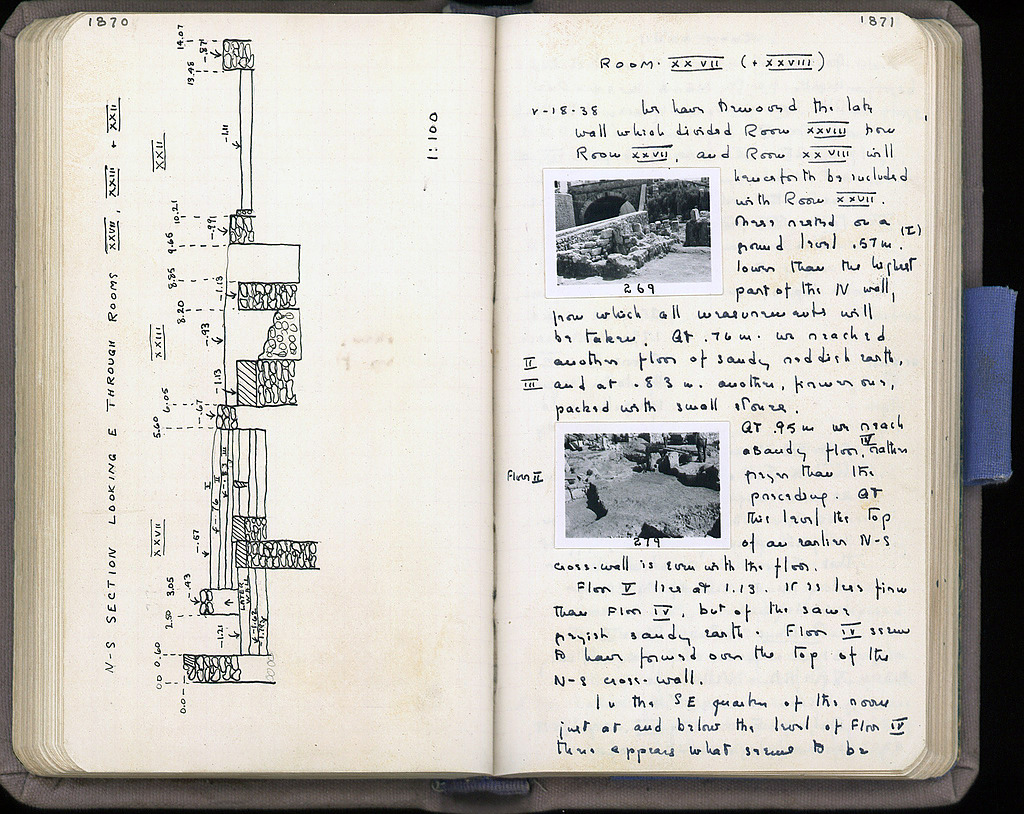 1870
N-S SECTION LOOKING E THROUGH ROOMS XXVII, XXIII + XXII
XXVII
XXIII
XXII
0.0
0.0
0.60
2.50
3.05
5.60
6.05
8.20
8.85
9.65
10.21
13.48
14.07
-1.21
-.43
-.67
-.76 II
-.83 III
LATER WALL
-1.62
-.67
-1.13
-.93
-1.13
-.91
-1.11
-.87
1:100
1871
ROOM XXVII (+ XXVIII)
V-18-38 We have removed the late
wall which divided Room XXVIII from
Room XXVII, and Room XXVIII will
henceforth be included
with Room XXVII.
These rested on a
ground level .57 m. (I)
lower than the highest
part of the N wall,
269
from which all measurements will
be taken. At .76 m. we reached
II another floor of sandy reddish earth,
III and at .83 m. another, firmer one,
packed with small stones.
At .95 m we reach
a sandy floor, IV rather
greyer than the
preceding. At
this level the top
of an earlier N-S
Floor II
279
cross-wall is even with the floor.
Floor V lies at 1.13. It is less firm
than Floor IV, but of the same
greyish sandy earth. Floor IV seems
to have formed over the top of the
N-S cross-wall.
In the SE quarter of the room
just at and below the level of Floor IV
there appears what seems to be